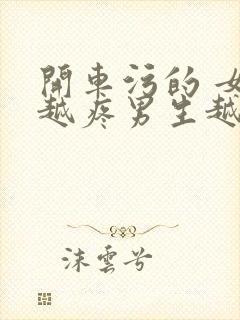 開車污的 女
越疼男生越
沫雲兮